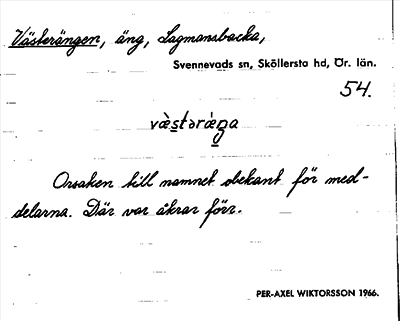 Västerängen, äng, Lagmansbacka,
Svennevads sn, Sköllersta hd, Ör. län.
54.
væ̀stərǽŋa
Orsaken till namnet obekant för med-
delarna. Där var åkrar förr.
PER-AXEL WIKTORSSON 1966.